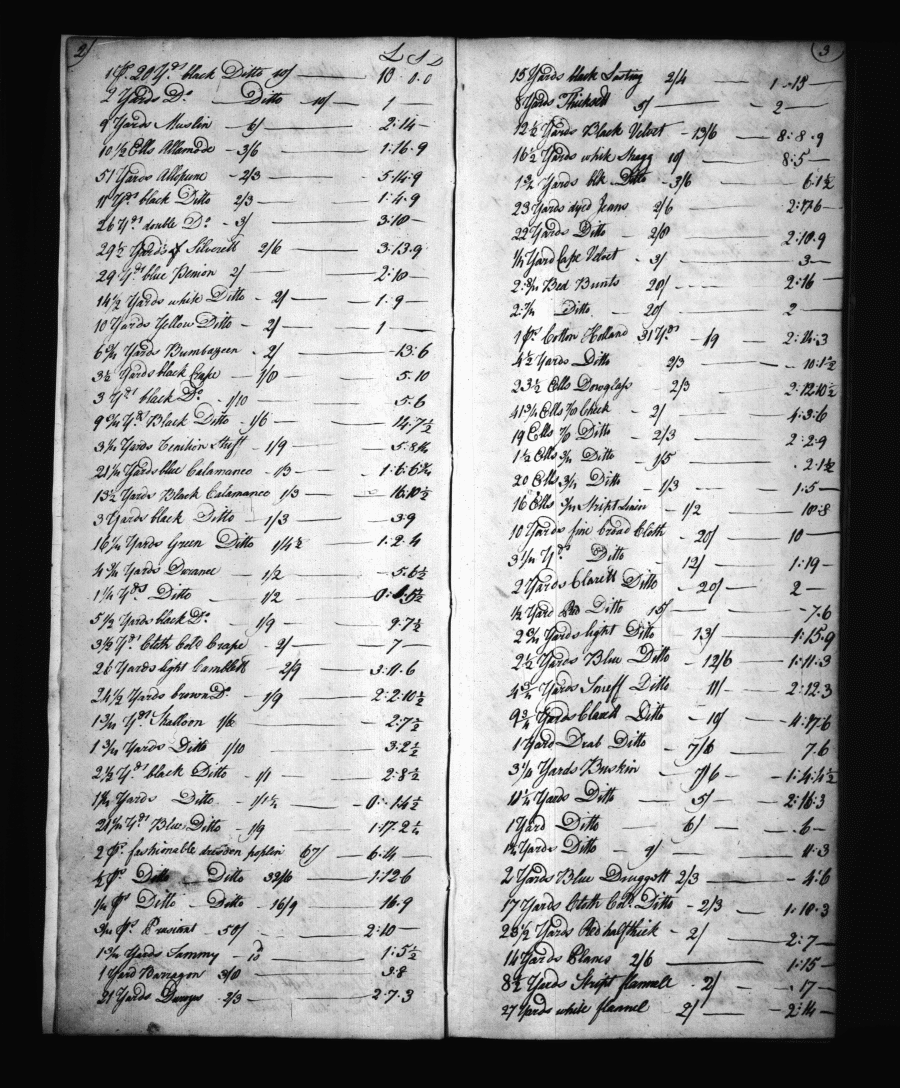 2/
L S D
1 Ps. 20 Yds black Ditto 10/ 10 . 0 . 0
2 Yards Do Ditto 10/ 1
9 Yards Muslin 6/ 2:14
10½ Ells Allamode 3/6 1:16.9
51 Yards Allopune 2/3 5:14.9
11 Yds black Ditto 2/3 1:4.9
26 Yds double Do 3/ 3:18
29½ Yards of Silverett 2/6 3:13.9
29 Yds blue 2/ 2:18
14½ Yards white Ditto 2/ 1.9
10 Yards Yellow Ditto 2/ 1
6¾ Yards Bumbazeen 2/ 13:6
3½ Yards black Crape 1/8 5.10
3 Yds black Do 1/10 5.6
9¾ Yds Black Ditto 1/6 14.7½
3¼ Yards Stuff 1/9 5.8¼
21¼ Yards blue Calamanco 1/3 1:6:6¾
13½ Yards Black Calamanco 1/3 16:10½
3 Yards black Ditto 1/3 3.9
16½ Yards Green Ditto 1/4½ 1:2.4
4¾ Yards Durance 1/2 5.6½
1¼ Yds Ditto 1/2 0:1.5½
5½ Yards black Do 1/9 9.7½
3½ Yds Cloth Cold Crape 2/ 7
26 Yards light Camblett 2/9 3.11.6
24½ Yards brown Do 1/9 2:2.10½
1¾ Yds Shalloon 1/6 2:7½
1¾ Yards Ditto 1/10 3.2½
2½ Yds black Ditto 1/1 2:8½
1¼ Yards Ditto 1/1½ 0:1.4½
21¼ Yds Blue Ditto 1/9 1.17.2¼
2 Ps. fashionable dresden poplin 67/ 6:14
½ Ps Ditto Ditto 32/6 1:12.6
¼ Ps Ditto Ditto 16/9 16.9
¾ Ps. Prusiant 50/ 2:10
1¾ Yards Tammy 10 1:5½
1 Yard Barragon 3/8 3.8
21 Yards 2/3 2.7.3
3
15 Yards black Lasting 2/4 1-15
8 Yards Thicksett 5/ 2
12½ Yards Black Velvet 13/6 8:8.9
16½ Yards white Shagg 10/ 8:5
1¾ Yards blk Ditto 3/6 6:1½
23 Yards dyed Jeans 2/6 2:17.6
22 Yards Ditto 2/8 2:10.9
½ Yard Cape Velvet 3/ 3
2:⅘ Bed Bunts 20/ 2:16
2:¾ Ditto 20/ 2
1 Ps. Cotton Holland 31 Yds 1/9 2:14:3
4½ Yards Ditto 2/3 10:1½
23½ Ells Dowglass 2/3 2:12.10½
41¾ Ells ⅞ Check 2/ 4:3:6
19 Ells ⅞ Ditto 2/3 2:2.9
1½ Ells ¾ Ditto 1/5 2:1½
20 Ells ¾ Ditto 1/3 1:5
16 Ells ¾ Stript Linen 1/2 18:8
10 Yards fine broad Cloth 20/ 10
3¼ Yds Ditto 12/ 1:19
2 Yards Clarett Ditto 20/ 2
½ Yard Red Ditto 15/ 7.6
2¾ Yards light Ditto 13/ 1:15.9
2½ Yards Blue Ditto 12/6 1:11.3
4¾ Yards Snuff Ditto 11/ 2:12.3
9¾ Yards Clarett Ditto 10/ 4:17.6
1 Yard Drab Ditto 7/6 7.6
3¼ Yards Buskin 7/6 1:4:4½
11¼ Yards Ditto 5/ 2:16:3
1 Yard Ditto 6/ 6
1¼ Yards Ditto 9/ 11:3
2 Yards Blue Druggett 2/3 4:6
17 Yards Cloth Cold Ditto 2/3 1:18.3
23½ Yards Red halfthick 2/ 2:7
14 Yards Planes 2/6 1:15
8½ Yards Stript flannell 2/ 17
27 Yards white flannel 2/ 2:14